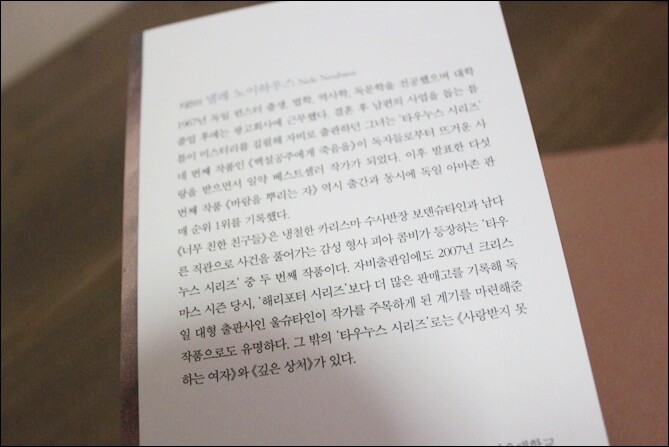 지은이 넬레 노이하우스 Nele Neuhaus
1967년 독일 뮌스터 출생. 법학, 역사학, 독문학을 전공했으며 대학
졸업 후에는 광고회사에 근무했다. 결혼 후 남편의 사업을 돕는 틈
틈이 미스터리를 집필해 자비로 출판하던 그녀는 ‘타우누스 시리즈’
네 번째 작품인 《백설공주에게 죽음을》이 독자들로부터 뜨거운 사
랑을 받으면서 일약 베스트셀러 작가가 되었다. 이후 발표한 다섯
번째 작품 《바람을 뿌리는 자》 역시 출간과 동시에 독일 아마존 판
매 순위 1위를 기록했다.
《너무 친한 친구들》은 냉철한 카리스마 수사반장 보덴슈타인과 남다
른 직관으로 사건을 풀어가는 감성 형사 피아 콤비가 등장하는 ‘타우
누스 시리즈’ 중 두 번째 작품이다. 자비출판임에도 2007년 크리스
마스 시즌 당시, ‘해리포터 시리즈’보다 더 많은 판매고를 기록해 독
일 대형 출판사인 울슈타인이 작가를 주목하게 된 계기를 마련해준
작품으로도 유명하다. 그 밖의 ‘타우누스 시리즈’로는 《사랑받지 못
하는 여자》와 《깊은 상처》가 있다.